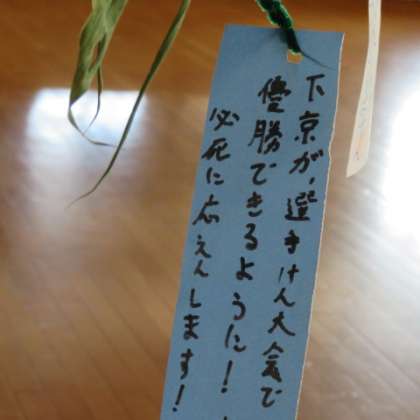 下京が、選手けん大会で
優勝できるように!
必死に応えんします!